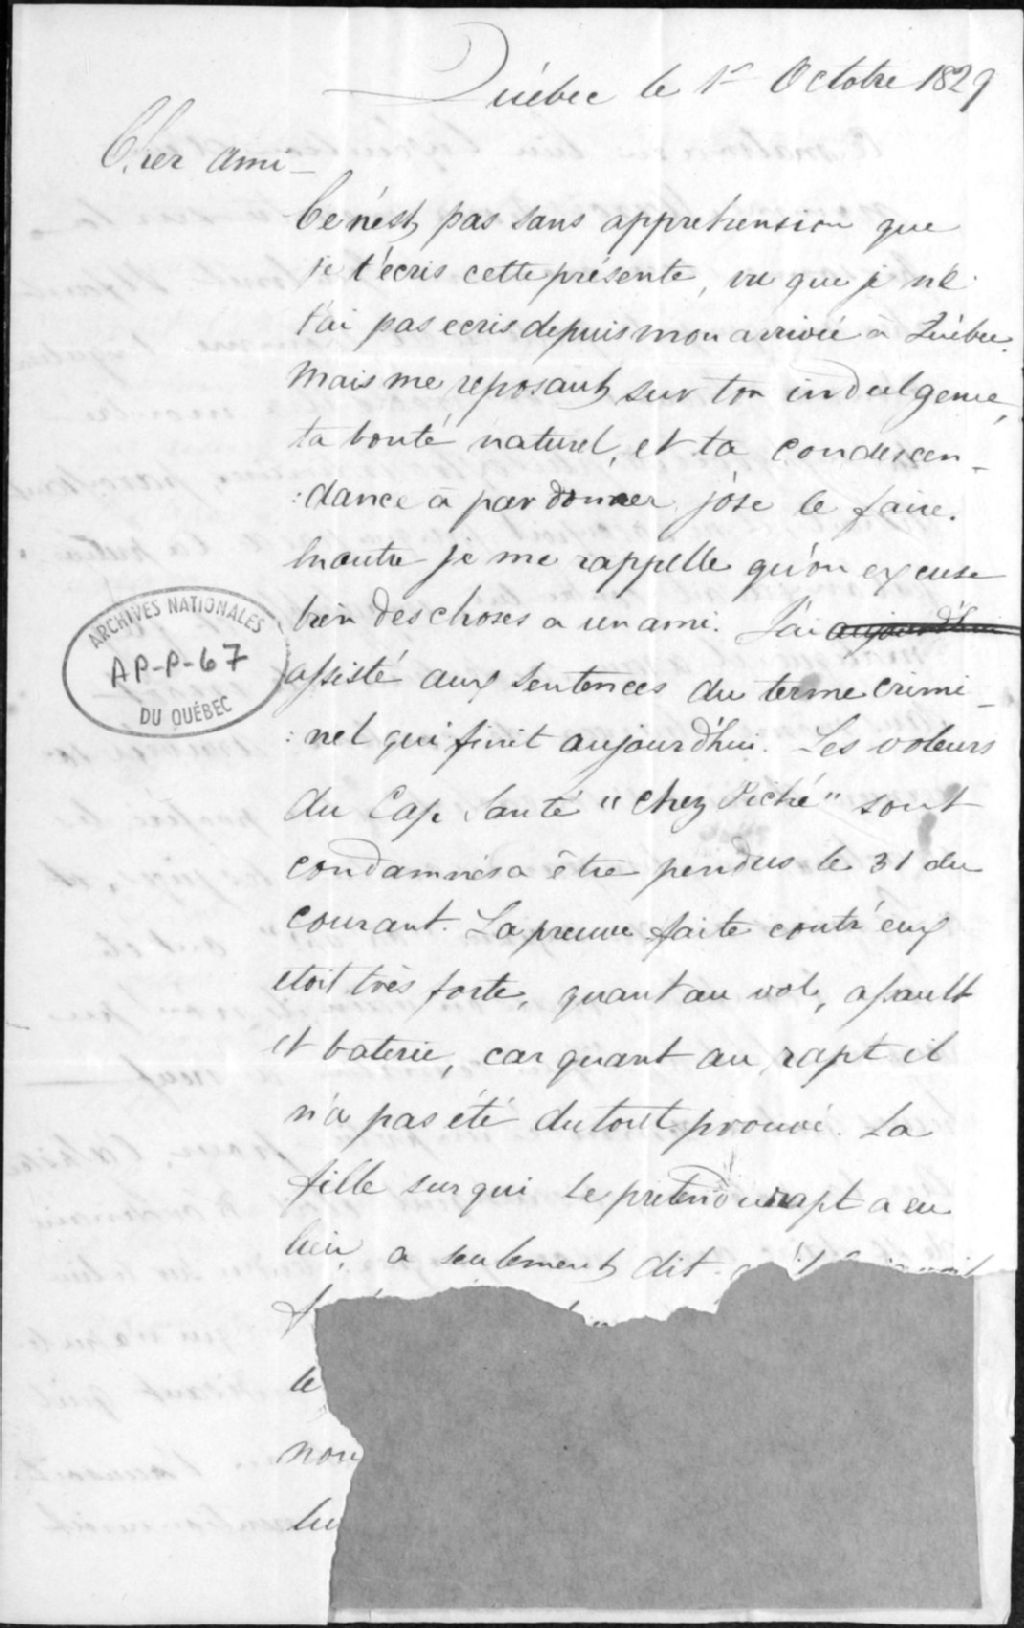 Québec le 1r Octobre 1829
Cher ami —
Ce n'est pas sans apprehension que
je t'écris cette présente, vu que je ne
t'ai pas ecris depuis mon arrivée à Québec.
Mais me reposant sur ton indulgence,
ta bonté naturel, et ta condescen-
:dance à pardonner j'ose le faire.
En outre je me rappelle qu'on excuse
bien des choses a un ami. J'ai aujourd'hui
assisté aux Sentences du terme crimi-
:nel qui finit aujourd'hui. Les voleurs
du Cap Santé "chez Piché" sont
condamnés a être pendus le 31 du
courant. La preuve faite contr'eux
etoit très forte, quant au vol, assault
et baterie, car quant au rapt il
n'a pas été du tout prouvé. La
fille sur qui le prétendu rapt a eu
lieu, a seulement dit
le
non
lu
ARCHIVES NATIONALES
AP-P-67
DU QUÉBEC